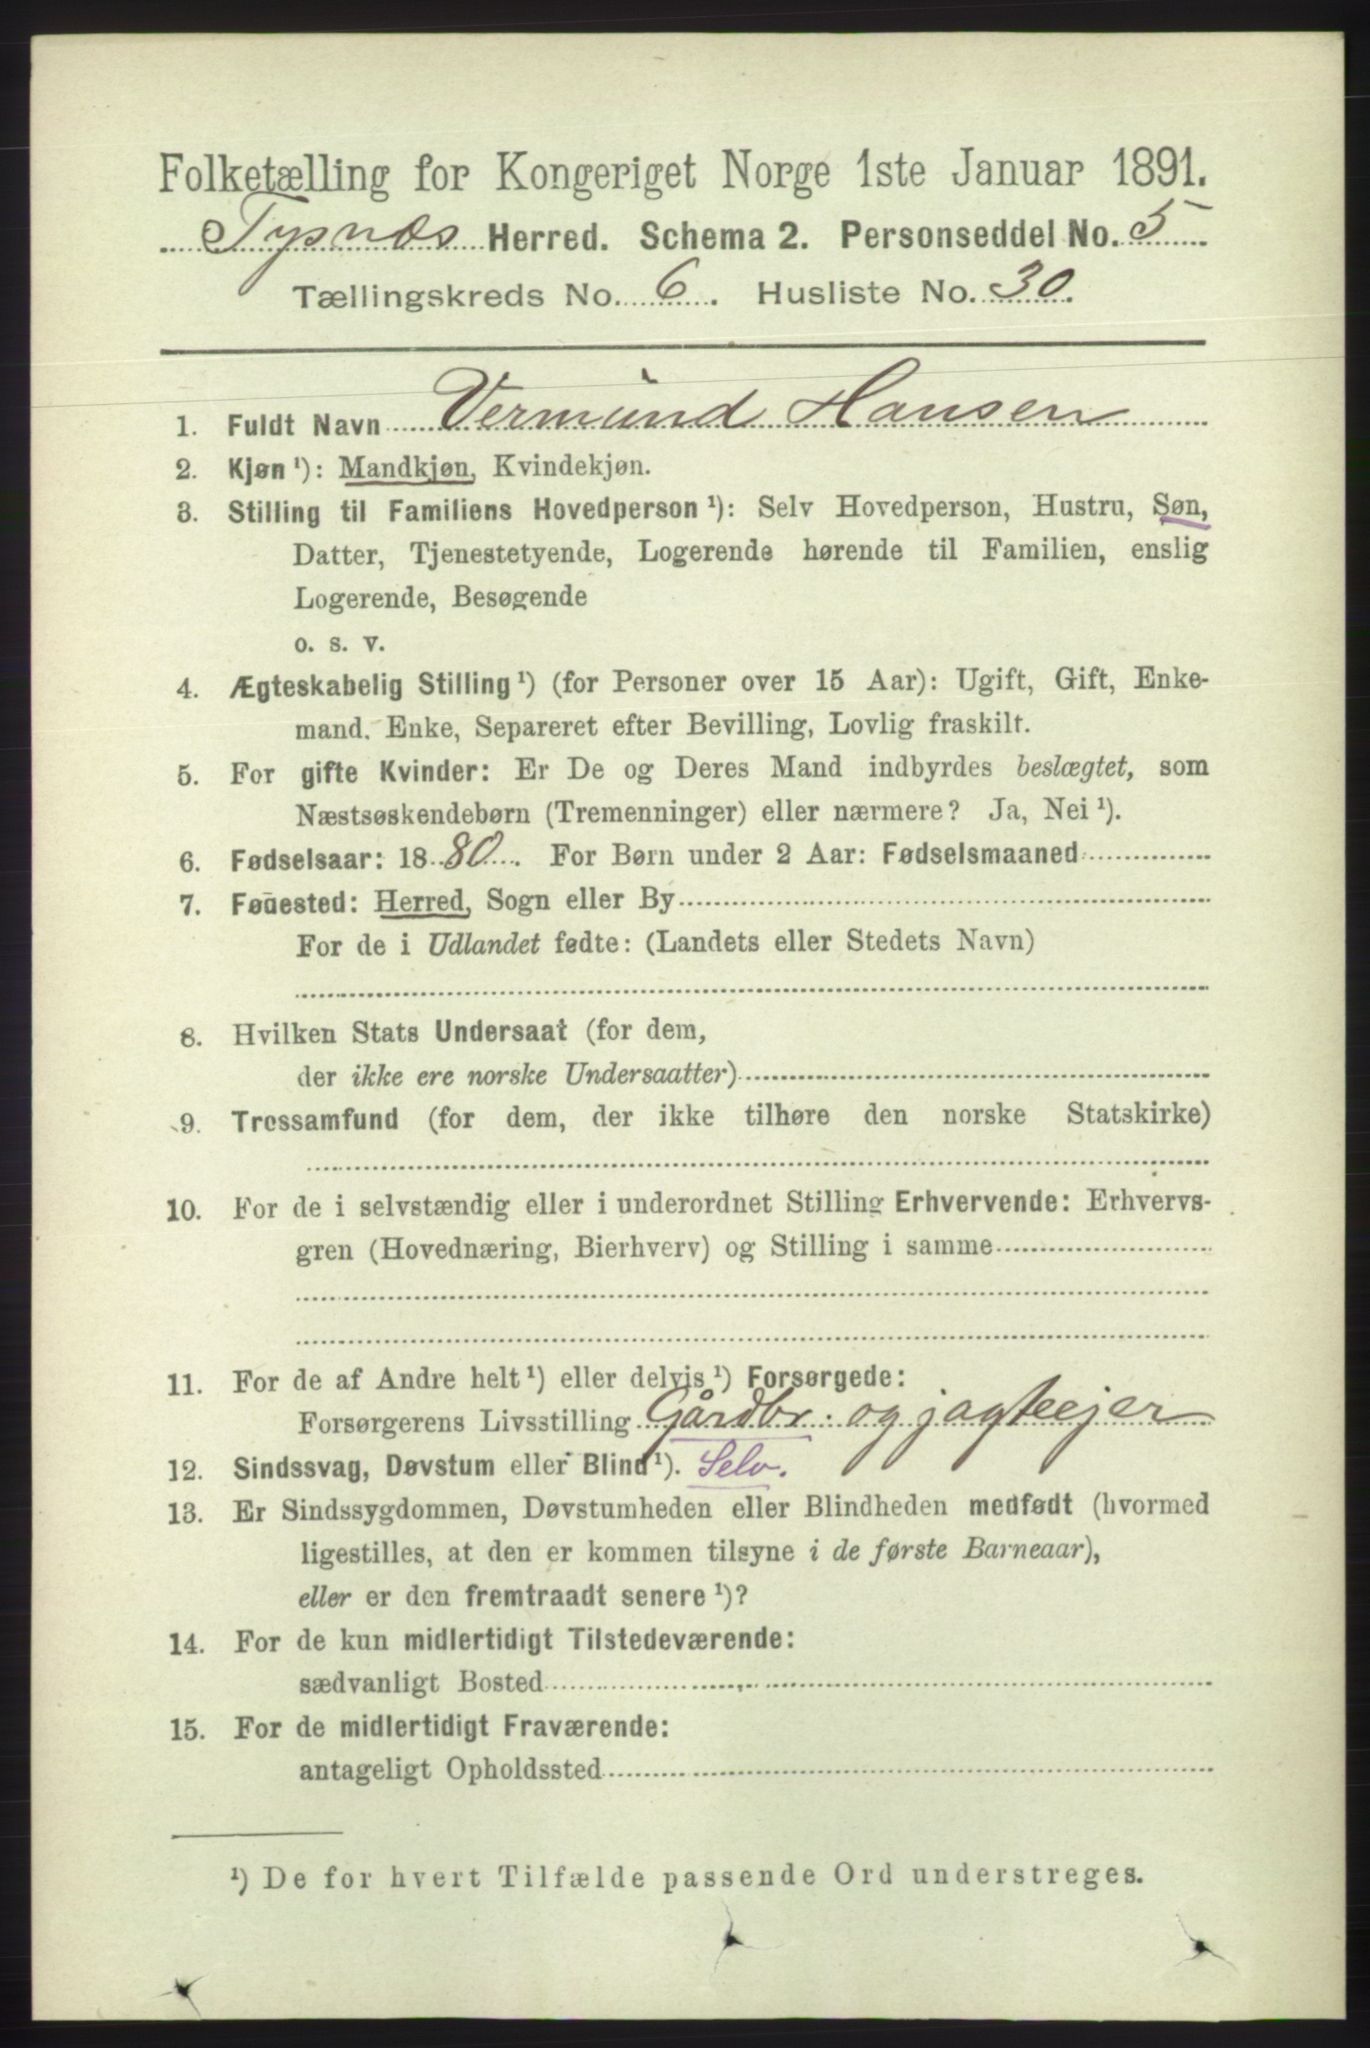 Folketælling for Kongeriget Norge 1ste Januar 1891.
Tysnæs Herred. Schema 2. Personseddel No. 5
Tællingskreds No. 6. Husliste No. 30.
1. Fuldt Navn Vermund Hansen
2. Kjøn ¹): Mandkjøn, Kvindekjøn.
3. Stilling til Familiens Hovedperson ¹): Selv Hovedperson, Hustru, Søn,
Datter, Tjenestetyende, Logerende hørende til Familien, enslig
Logerende, Besøgende
o. s. v.
4. Ægteskabelig Stilling ¹) (for Personer over 15 Aar): Ugift, Gift, Enke-
mand. Enke, Separeret efter Bevilling, Lovlig fraskilt.
5. For gifte Kvinder: Er De og Deres Mand indbyrdes beslægtet, som
Næstsøskendebørn (Tremenninger) eller nærmere? Ja, Nei ¹).
6. Fødselsaar: 1880. For Børn under 2 Aar: Fødselsmaaned
7. Fødested: Herred, Sogn eller By
For de i Udlandet fødte: (Landets eller Stedets Navn)
8. Hvilken Stats Undersaat (for dem,
der ikke ere norske Undersaatter)
9. Trossamfund (for dem, der ikke tilhøre den norske Statskirke)
10. For de i selvstændig eller i underordnet Stilling Erhvervende: Erhvervs-
gren (Hovednæring, Bierhverv) og Stilling i samme
11. For de af Andre helt ¹) eller delvis ¹) Forsørgede:
Forsørgerens Livsstilling Gårdbr. og jagteejer
12. Sindssvag, Døvstum eller Blind ¹). Selv.
13. Er Sindssygdommen, Døvstumheden eller Blindheden medfødt (hvormed
ligestilles, at den er kommen tilsyne i de første Barneaar),
eller er den fremtraadt senere ¹)?
14. For de kun midlertidigt Tilstedeværende:
sædvanligt Bosted
15. For de midlertidigt Fraværende:
antageligt Opholdssted
¹) De for hvert Tilfælde passende Ord understreges.